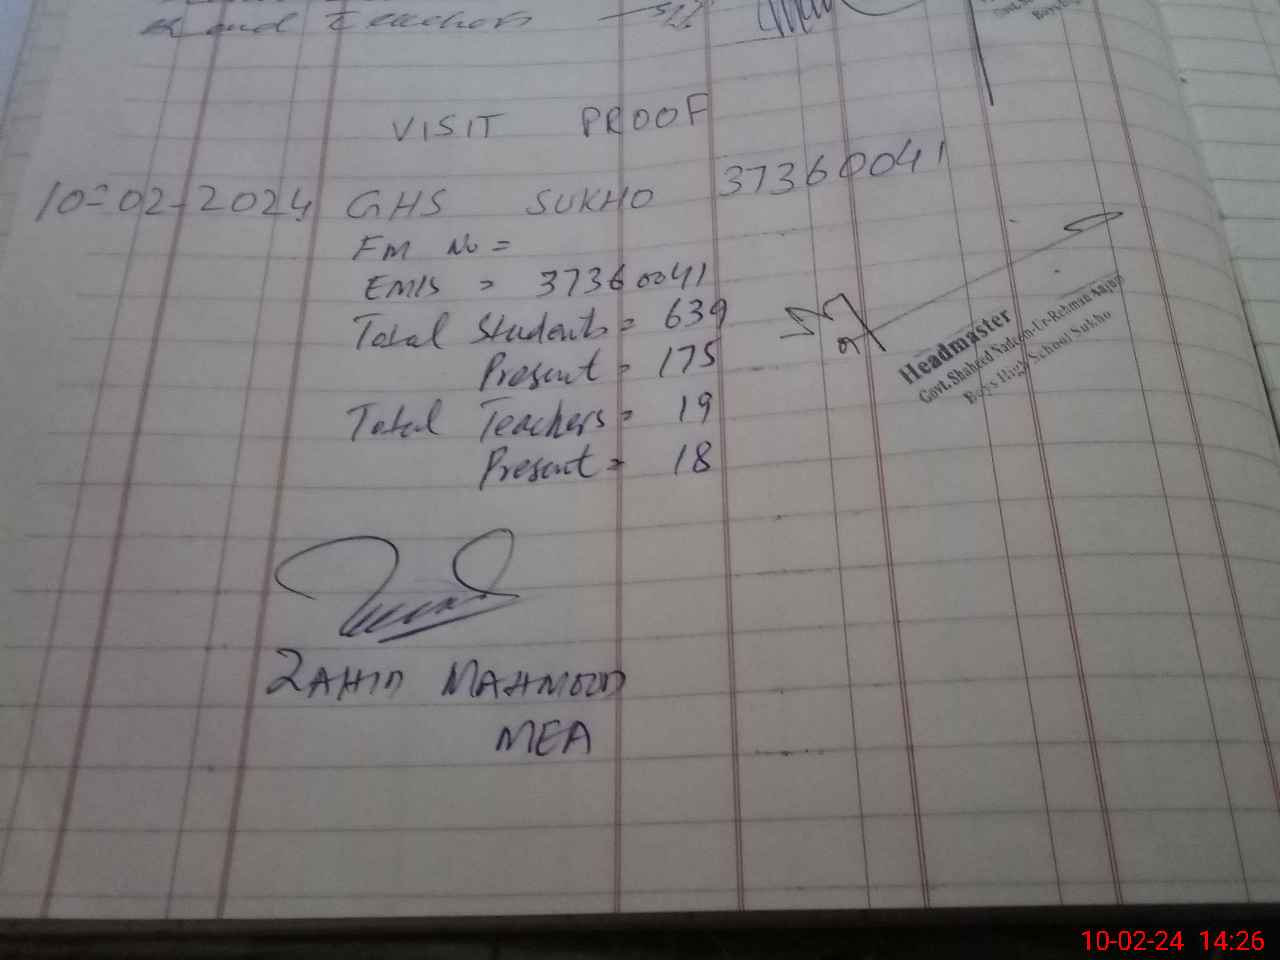 Teachers
VISIT PROOF
10-02-2024 GHS SUKHO 37360041
FM No =
EMIS = 37360041
Total Students = 639
Present = 175
Total Teachers = 19
Present = 18
Headmaster
Govt. Shaheed Nadeem-Ur-Rehman
Boys High School Sukho
ZAHID MAHMOOD
MEA
10-02-24 14:26